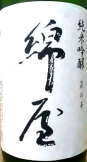 純米吟醸
綿屋